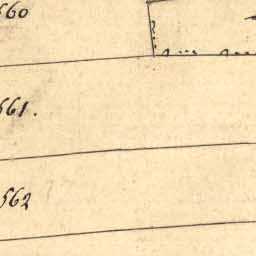 560
561.
562